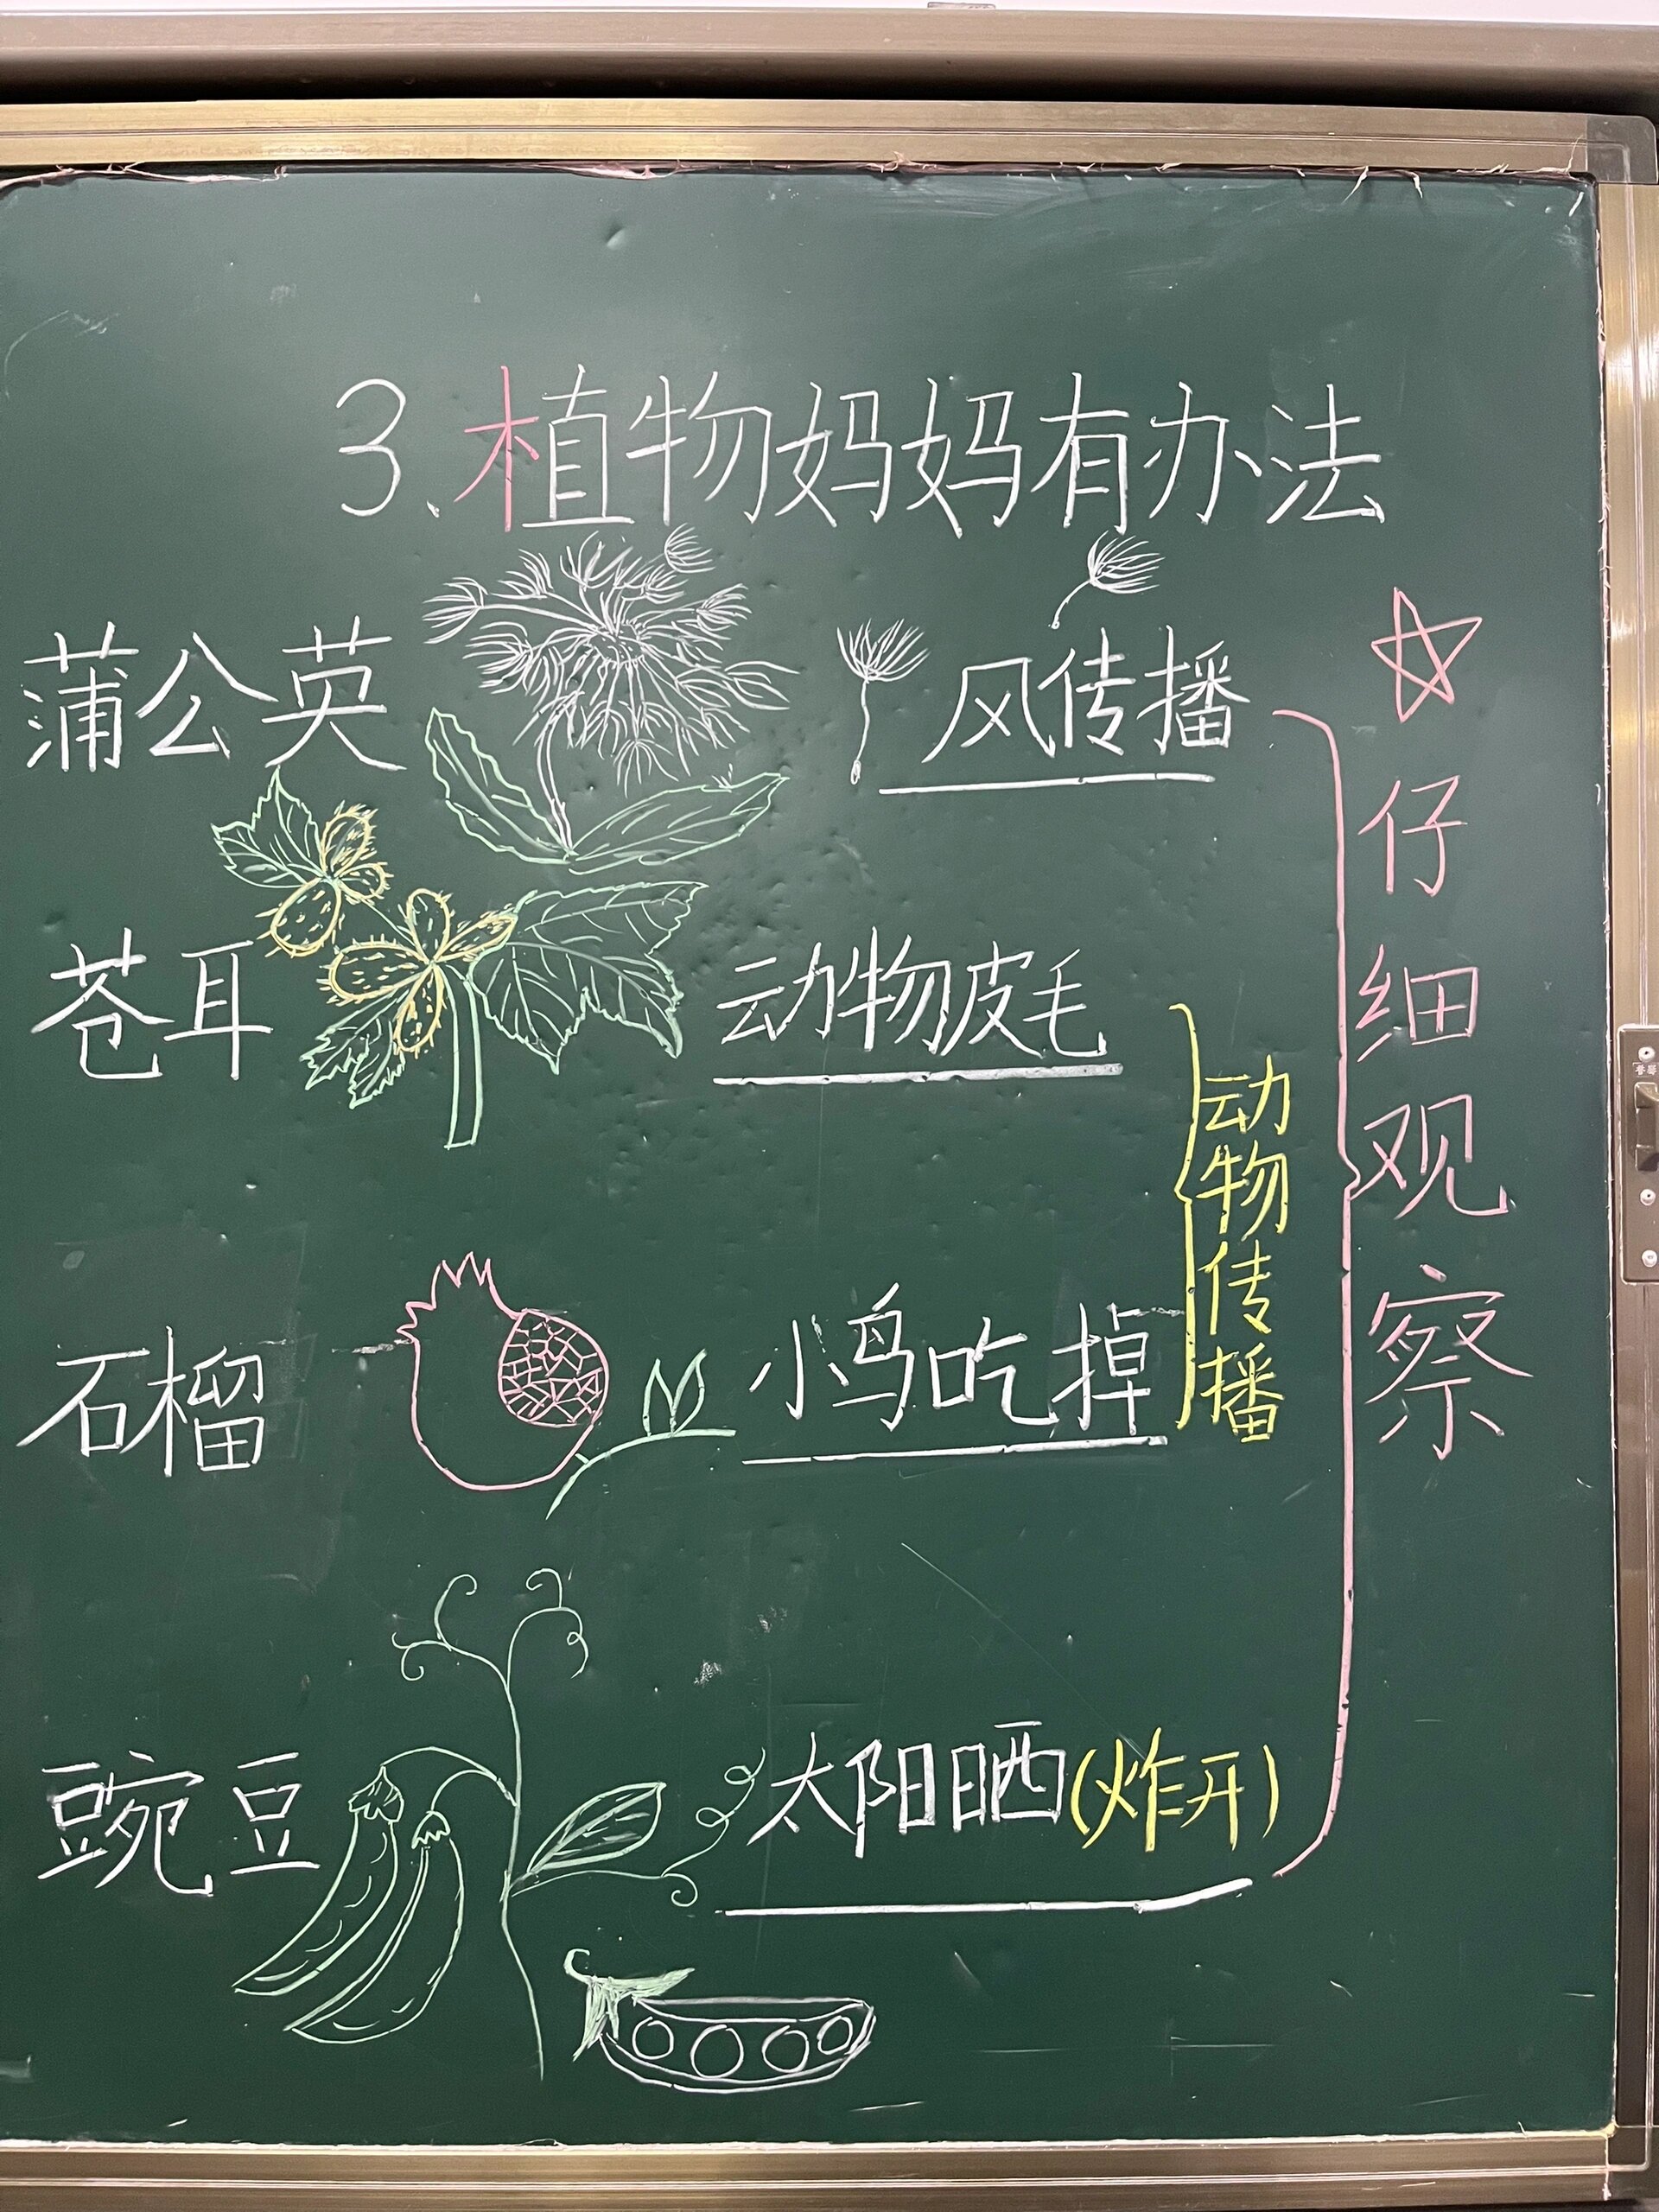 3.植物妈妈有办法
蒲公英 风传播
苍耳 动物皮毛
石榴 小鸟吃掉
豌豆 太阳晒(炸开)
动物传播
☆仔细观察